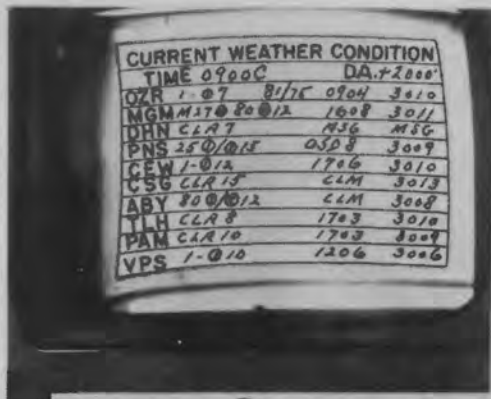 CURRENT WEATHER CONDITION
TIME 0900C DA.+2000'
OZR 1-⦶7 81/75 0904 3010
MGM M27⦶ 80⦶12 1608 3011
DHN CLR 7 MSG MSG
PNS 25⦶/⦶15 0508 3009
CEW 1-⦶12 1706 3010
CSG CLR 15 CLM 3013
ABY 80⦶/⦶12 CLM 3008
TLH CLR 8 1703 3010
PAM CLR 10 1703 3009
VPS 1-⦶10 1206 3006